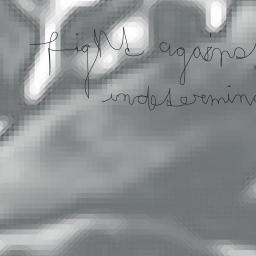 fight agains
indetermin